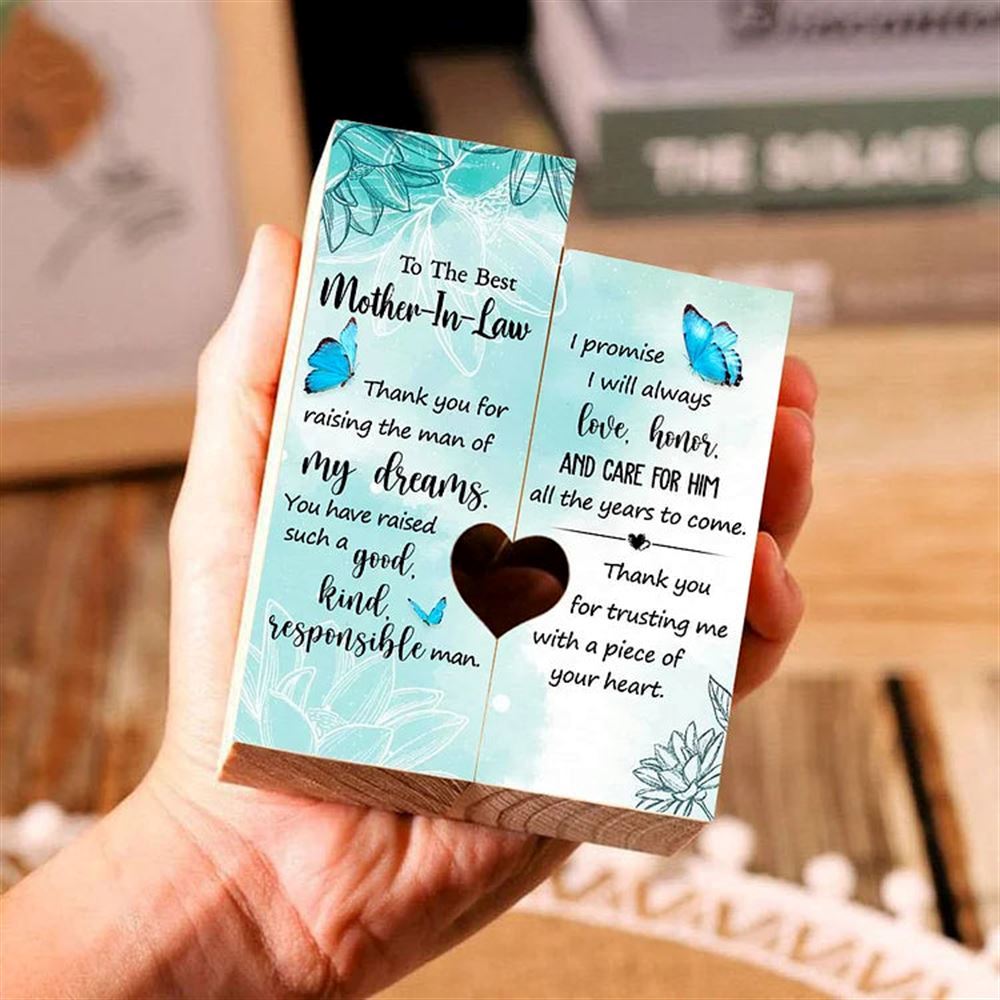 To The Best
Mother-In-Law
Thank you for
raising the man of
my dreams.
You have raised
such a good,
kind,
responsible man.
I promise
I will always
love, honor,
AND CARE FOR HIM
all the years to come.
Thank you
for trusting me
with a piece of
your heart.
THE SOLACE